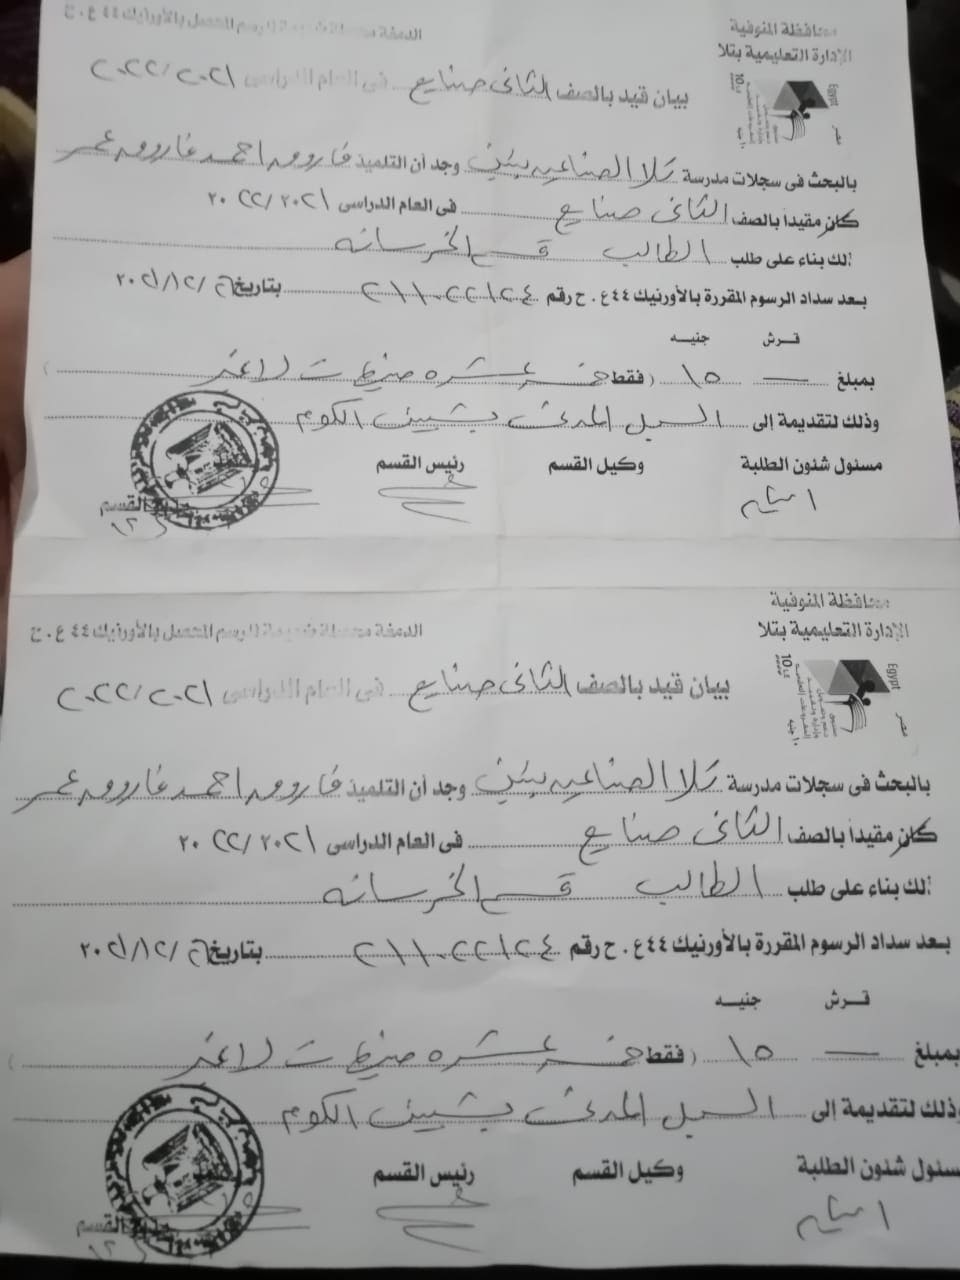 محافظة المنوفية
الإدارة التعليمية بتلا
الدمغة محصلة ضميمة للرسم المحصل بالأورنيك ٤٤ ع.ح
Egypt مصر
بيان قيد بالصف الثانى صنايع فى العام الدراسى ٢٠٢٢/٢٠٢١
بالبحث فى سجلات مدرسة تلا الصناعيه بنين وجد أن التلميذ فاروق احمد فاروق عمر
كان مقيداً بالصف الثانى صنايع فى العام الدراسى ٢٠٢٢/٢٠٢١
ذلك بناء على طلب الطالب قسم الخرسانه
بعد سداد الرسوم المقررة بالأورنيك ٤٤ ع.ح رقم بتاريخ
قرش جنيه
بمبلغ — ١٥ ( فقط خمسة عشره جنيهات لا غير )
وذلك لتقديمة إلى السجل المدنى بشبين الكوم
مسئول شئون الطلبة وكيل القسم رئيس القسم
مدير القسم
محافظة المنوفية
الإدارة التعليمية بتلا
الدمغة محصلة ضميمة للرسم المحصل بالأورنيك ٤٤ ع.ح
Egypt مصر
١٠ جنيه
بيان قيد بالصف الثانى صنايع فى العام الدراسى ٢٠٢٢/٢٠٢١
بالبحث فى سجلات مدرسة تلا الصناعيه بنين وجد أن التلميذ فاروق احمد فاروق عمر
كان مقيداً بالصف الثانى صنايع فى العام الدراسى ٢٠٢٢/٢٠٢١
ذلك بناء على طلب الطالب قسم الخرسانه
بعد سداد الرسوم المقررة بالأورنيك ٤٤ ع.ح رقم بتاريخ
قرش جنيه
بمبلغ — ١٥ ( فقط خمسة عشره جنيهات لا غير )
وذلك لتقديمة إلى السجل المدنى بشبين الكوم
مسئول شئون الطلبة وكيل القسم رئيس القسم
مدير القسم